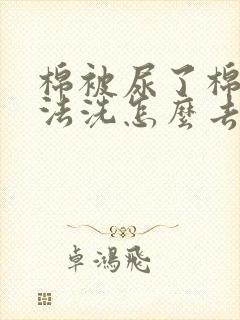 棉被尿了棉
法洗怎麼去
卓鴻飛